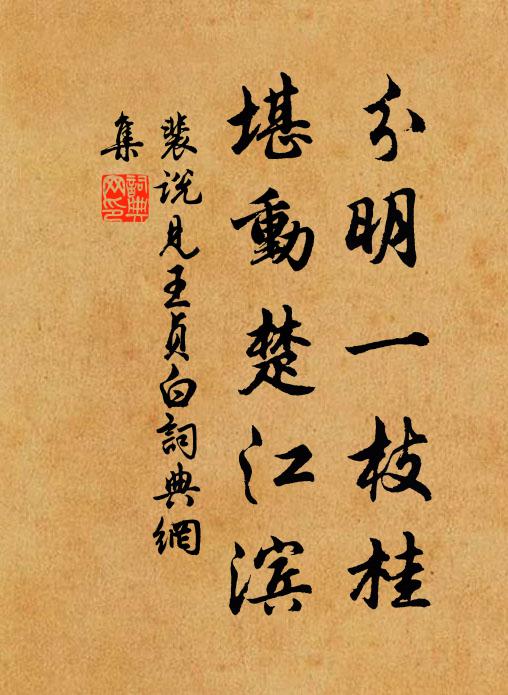 分明一枝桂
堪動楚江滨
裴说見王貞白詞典網
集
詞典網印